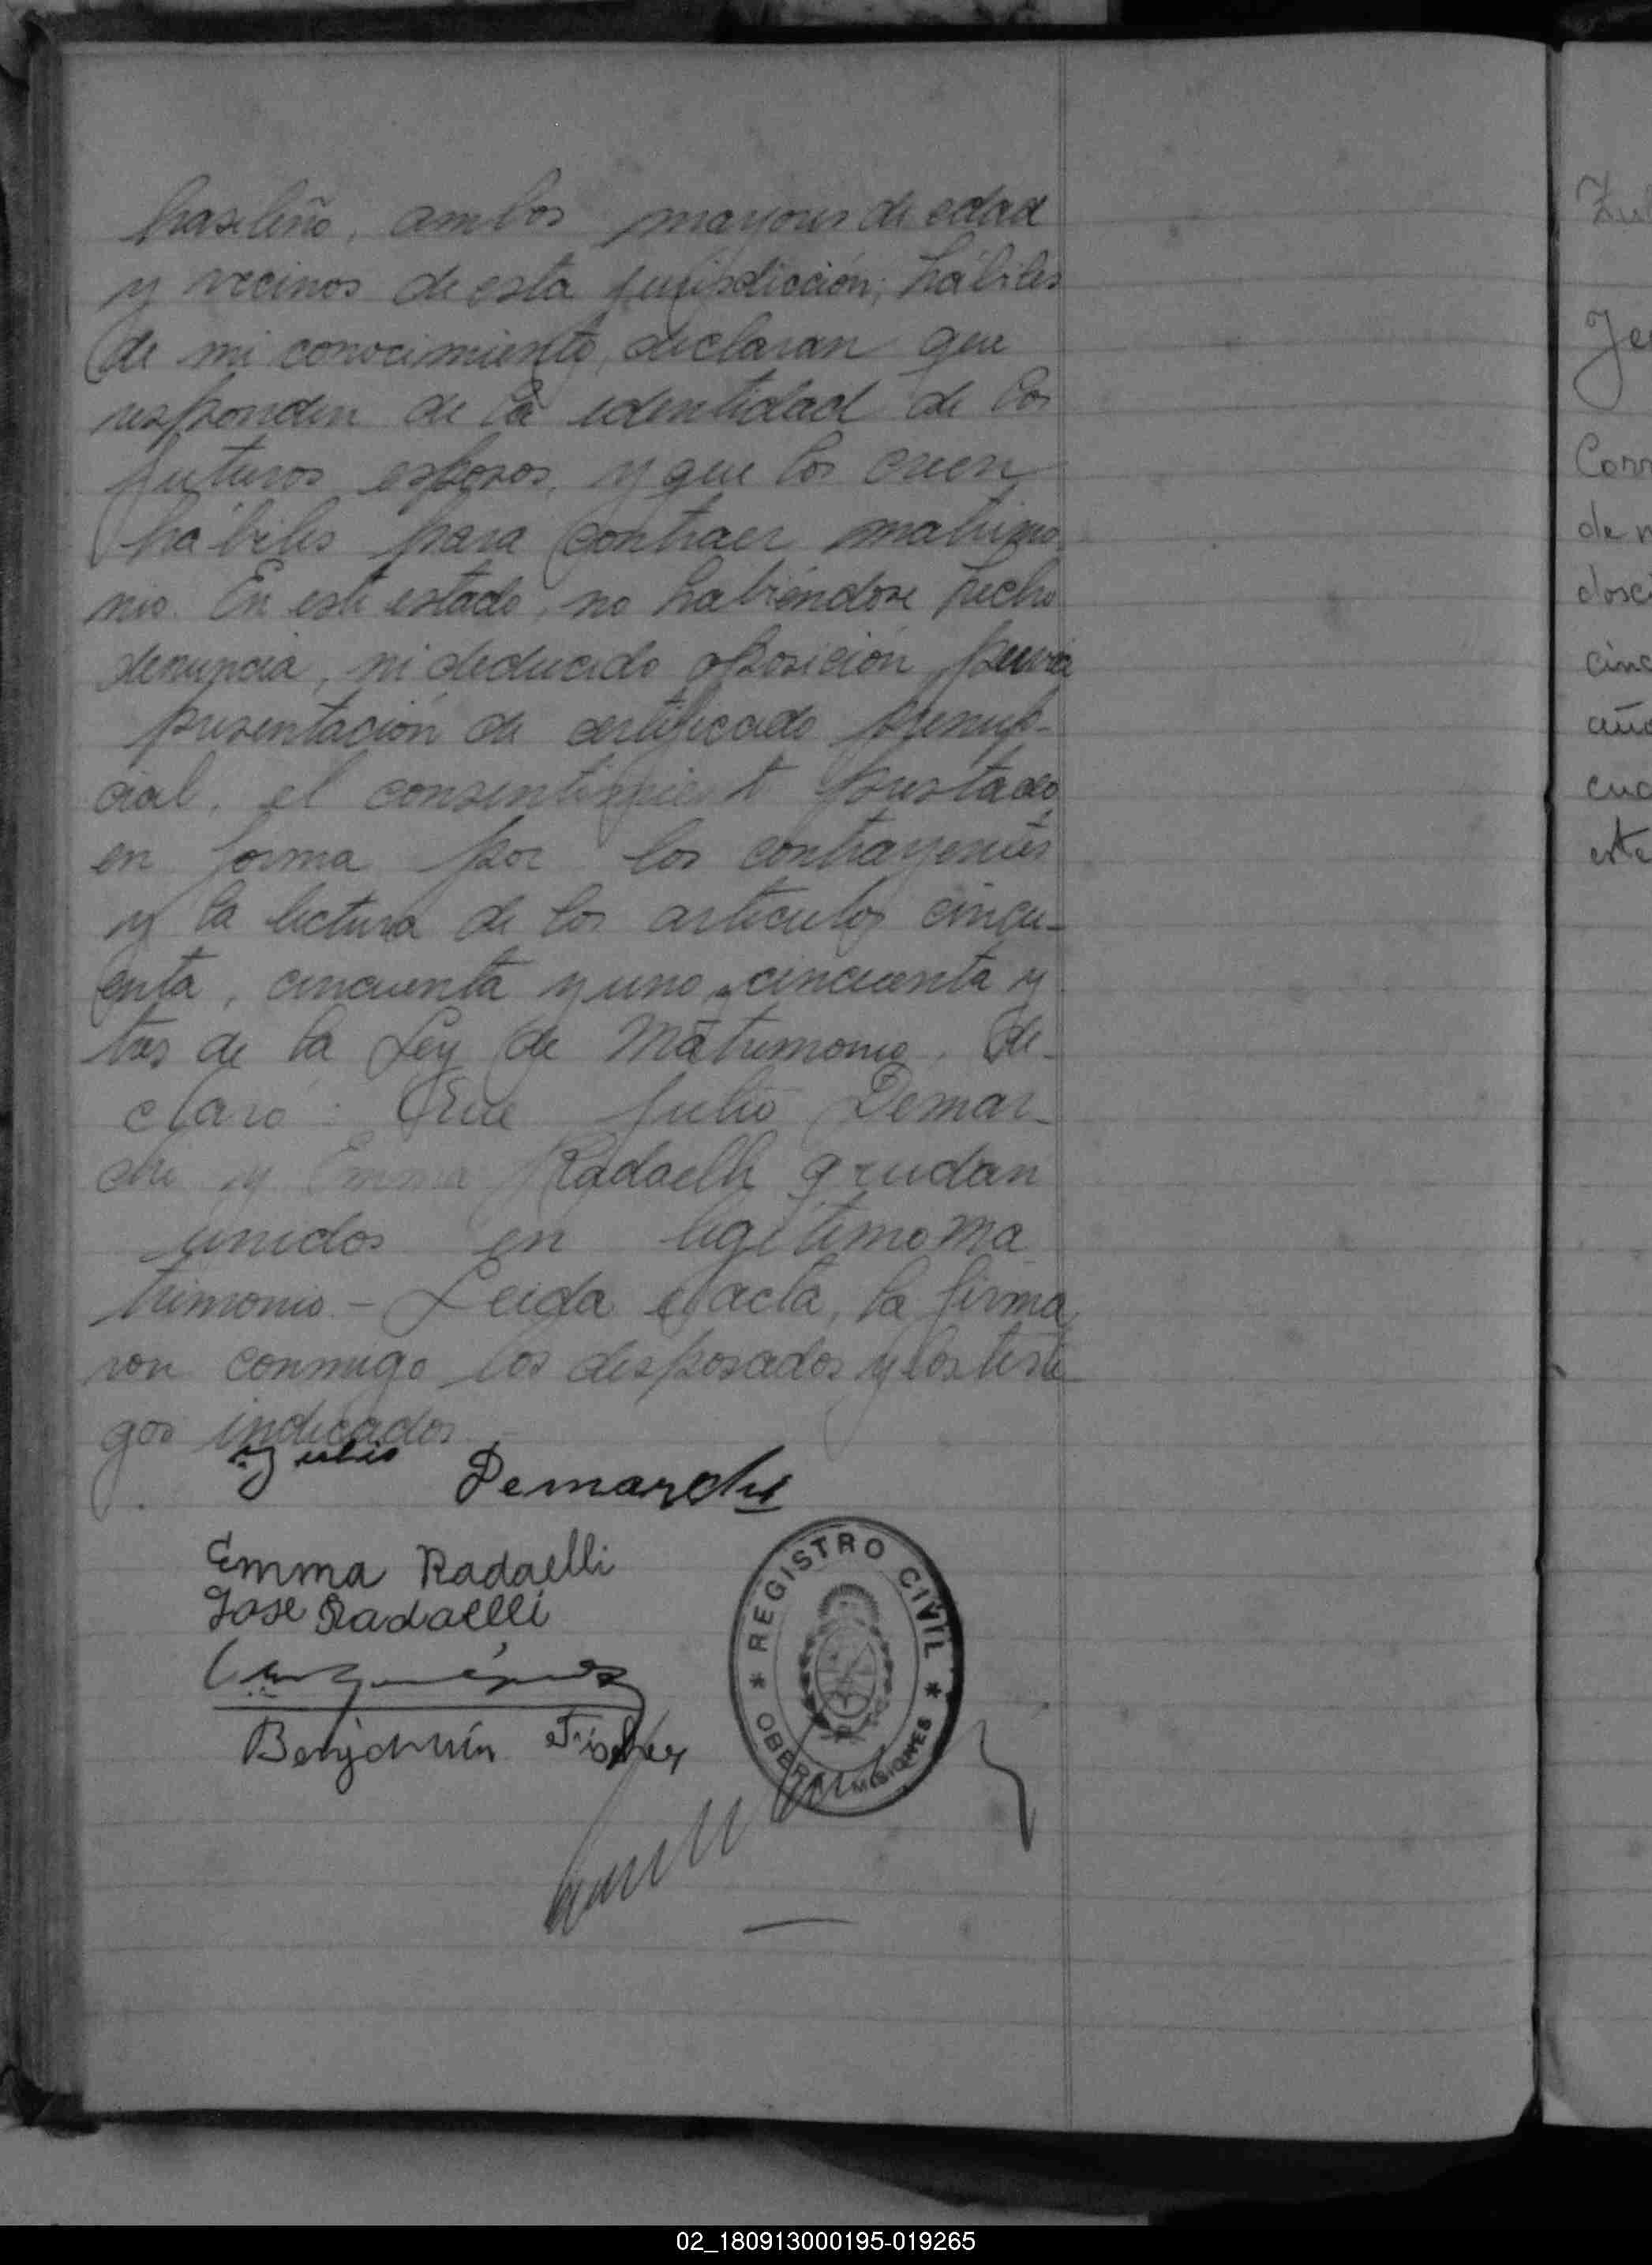 brasileño, ambos mayores de edad
y vecinos de esta jurisdicción; hábiles
de mi conocimiento, declaran que
responden de la identidad de los
futuros esposos, y que los creen
hábiles para contraer matrimo
nio. En este estado, no habiéndose hecho
denuncia, ni deducido oposición, previa
presentación de certificado prenup-
cial, el consentimient prestado
en forma por los contrayentes
y la lectura de los artículos cincu-
enta, cincuenta y uno y cincuenta y
tres de la Ley de Matrimonio, de-
claro: Que Julio Demar-
chi y Emma Radaelli quedan
unidos en legítimo ma
trimonio.- Leida el acta, la firma
ron conmigo los desposados y los testi
gos indicados
Julio Demarchi
Emma Radaelli
Jose Radaelli
Benjamín Fischer
* REGISTRO CIVIL *
OBERA MISIONES
Je
Corr
de n
dosci
cinc
año
cua
este
02_180913000195-019265